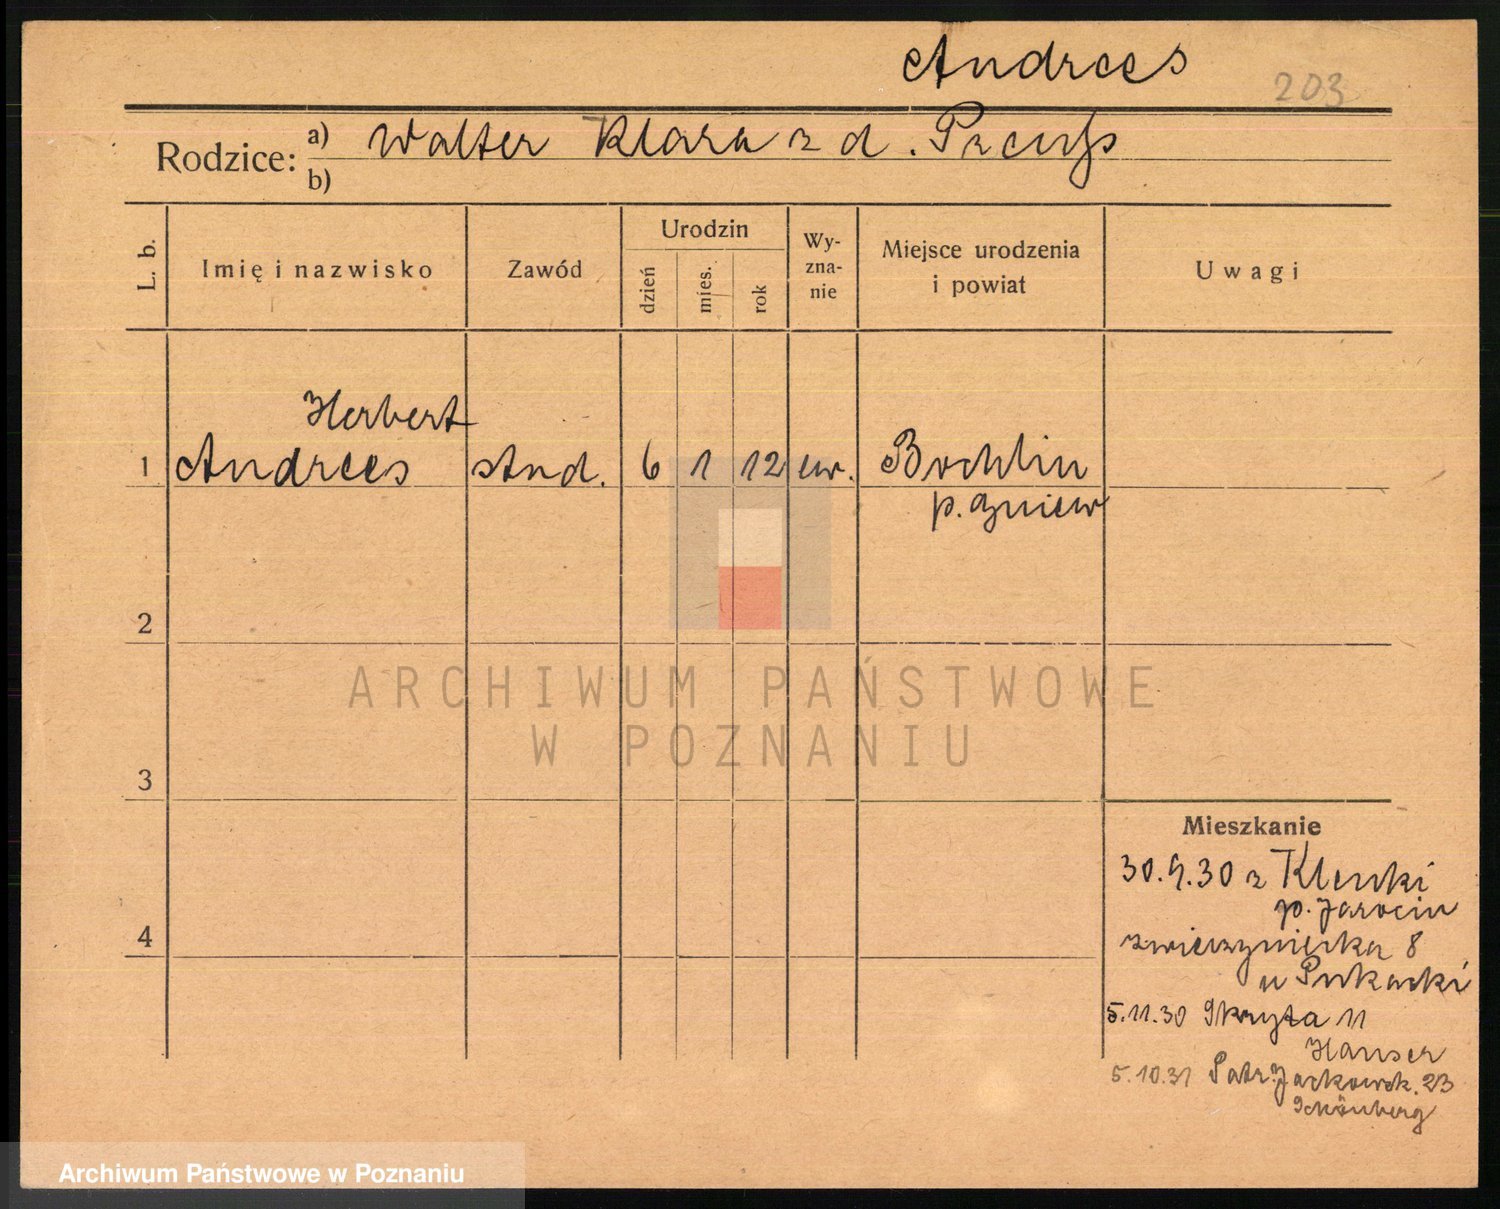 Andrees
203
Rodzice: a) Walter Klara z d. Preuß
b)
L. b.
Imię i nazwisko
Zawód
Urodzin
dzień
mies.
rok
Wy-
zna-
nie
Miejsce urodzenia
i powiat
Uwagi
Herbert
1 Andrees stud. 6 1 12 ew. Bochlin
p. Gniew
2
ARCHIWUM PAŃSTWOWE
W POZNANIU
3
Mieszkanie
30.9.30 z Klenki
p. Jarocin
4
zwierzyniecka 8
u Pukacki
5.11.30 Skryta 11
Hauser
5.10.31 Patr. Jackowsk. 23
Schönberg
Archiwum Państwowe w Poznaniu